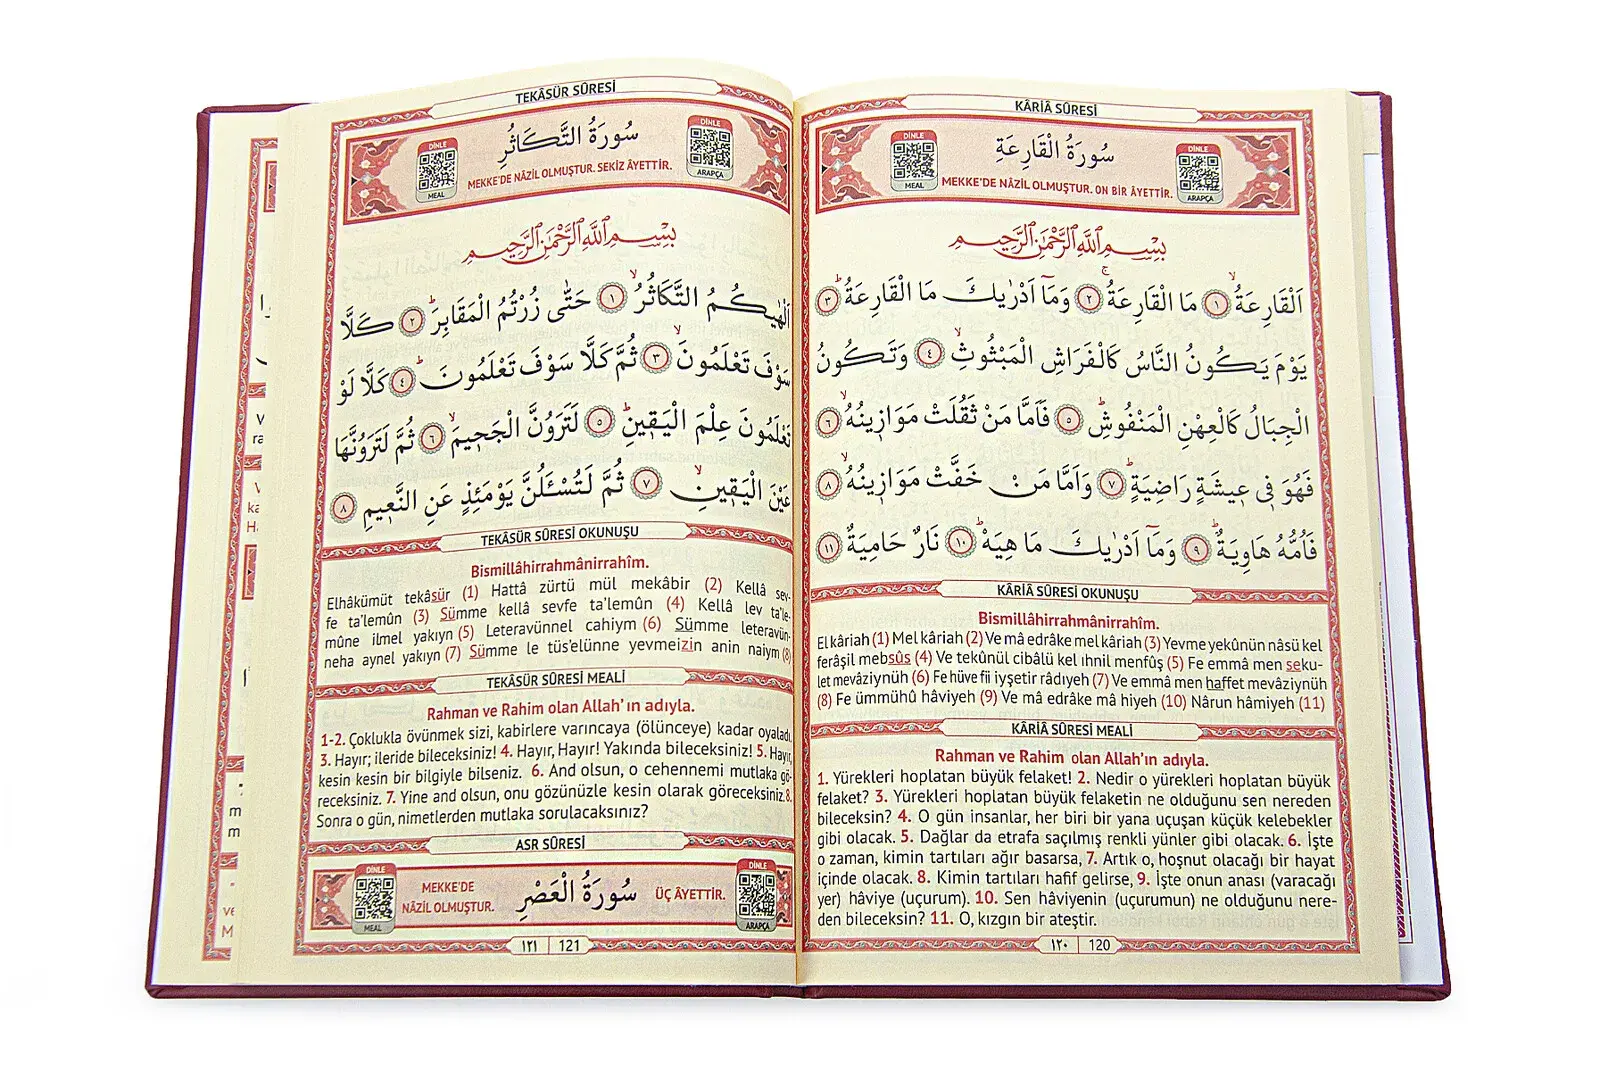 KÂRİA SÛRESİ
DİNLE
سُورَةُ الْقَارِعَةِ
DİNLE
MEAL
MEKKE'DE NÂZİL OLMUŞTUR. ON BİR ÂYETTİR.
ARAPÇA
بِسْمِ اللّٰهِ الرَّحْمٰنِ الرَّحِيمِ
اَلْقَارِعَةُۙ ﴿١﴾ مَا الْقَارِعَةُۚ ﴿٢﴾ وَمَٓا اَدْرٰيكَ مَا الْقَارِعَةُۜ ﴿٣﴾
يَوْمَ يَكُونُ النَّاسُ كَالْفَرَاشِ الْمَبْثُوثِۙ ﴿٤﴾ وَتَكُونُ
الْجِبَالُ كَالْعِهْنِ الْمَنْفُوشِۜ ﴿٥﴾ فَاَمَّا مَنْ ثَقُلَتْ مَوَازٖينُهُۙ ﴿٦﴾
فَهُوَ فٖي عٖيشَةٍ رَاضِيَةٍۜ ﴿٧﴾ وَاَمَّا مَنْ خَفَّتْ مَوَازٖينُهُۙ ﴿٨﴾
فَاُمُّهُ هَاوِيَةٌۜ ﴿٩﴾ وَمَٓا اَدْرٰيكَ مَا هِيَهْۜ ﴿١٠﴾ نَارٌ حَامِيَةٌ ﴿١١﴾
KÂRİA SÛRESİ OKUNUŞU
Bismillâhirrahmânirrahîm.
El kâriah (1) Mel kâriah (2) Ve mâ edrâke mel kâriah (3) Yevme yekûnün nâsü kel
ferâşil mebsûs (4) Ve tekûnül cibâlü kel ihnil menfûş (5) Fe emmâ men seku-
let mevâziynüh (6) Fe hüve fii iyşetir râdıyeh (7) Ve emmâ men haffet mevâziynüh
(8) Fe ümmühû hâviyeh (9) Ve mâ edrâke mâ hiyeh (10) Nârun hâmiyeh (11)
KÂRİÂ SÛRESİ MEALİ
Rahman ve Rahim olan Allah'ın adıyla.
1. Yürekleri hoplatan büyük felaket! 2. Nedir o yürekleri hoplatan büyük
felaket? 3. Yürekleri hoplatan büyük felaketin ne olduğunu sen nereden
bileceksin? 4. O gün insanlar, her biri bir yana uçuşan küçük kelebekler
gibi olacak. 5. Dağlar da etrafa saçılmış renkli yünler gibi olacak. 6. İşte
o zaman, kimin tartıları ağır basarsa, 7. Artık o, hoşnut olacağı bir hayat
içinde olacak. 8. Kimin tartıları hafif gelirse, 9. İşte onun anası (varacağı
yer) hâviye (uçurum). 10. Sen hâviyenin (uçurumun) ne olduğunu nere-
den bileceksin? 11. O, kızgın bir ateştir.
١٢٠ 120
TEKÂSÜR SÛRESİ
DİNLE
سُورَةُ التَّكَاثُرِ
DİNLE
MEAL
MEKKE'DE NÂZİL OLMUŞTUR. SEKİZ ÂYETTİR.
ARAPÇA
بِسْمِ اللّٰهِ الرَّحْمٰنِ الرَّحِيمِ
اَلْهٰيكُمُ التَّكَاثُرُۙ ﴿١﴾ حَتّٰى زُرْتُمُ الْمَقَابِرَۜ ﴿٢﴾ كَلَّا
سَوْفَ تَعْلَمُونَۙ ﴿٣﴾ ثُمَّ كَلَّا سَوْفَ تَعْلَمُونَۜ ﴿٤﴾ كَلَّا لَوْ
تَعْلَمُونَ عِلْمَ الْيَقٖينِۜ ﴿٥﴾ لَتَرَوُنَّ الْجَحٖيمَۙ ﴿٦﴾ ثُمَّ لَتَرَوُنَّهَا
عَيْنَ الْيَقٖينِۙ ﴿٧﴾ ثُمَّ لَتُسْـَٔلُنَّ يَوْمَئِذٍ عَنِ النَّعٖيمِ ﴿٨﴾
TEKÂSÜR SÛRESİ OKUNUŞU
Bismillâhirrahmânirrahîm.
Elhâkümüt tekâsür (1) Hattâ zürtü mül mekâbir (2) Kellâ sev-
fe ta'lemûn (3) Sümme kellâ sevfe ta'lemûn (4) Kellâ lev ta'le-
mûne ilmel yakıyn (5) Leteravünnel cahiym (6) Sümme leteravün-
neha aynel yakıyn (7) Sümme le tüs'elünne yevmeizin anin naiym (8)
TEKÂSÜR SÛRESİ MEALİ
Rahman ve Rahim olan Allah'ın adıyla.
1-2. Çoklukla övünmek sizi, kabirlere varıncaya (ölünceye) kadar oyaladı.
3. Hayır; ileride bileceksiniz! 4. Hayır, Hayır! Yakında bileceksiniz! 5. Hayır,
kesin kesin bir bilgiyle bilseniz. 6. And olsun, o cehennemi mutlaka gö-
receksiniz. 7. Yine and olsun, onu gözünüzle kesin olarak göreceksiniz. 8.
Sonra o gün, nimetlerden mutlaka sorulacaksınız?
ASR SÛRESİ
DİNLE
MEKKE'DE
NÂZİL OLMUŞTUR.
سُورَةُ الْعَصْرِ
ÜÇ ÂYETTİR.
DİNLE
MEAL
ARAPÇA
١٢١ 121